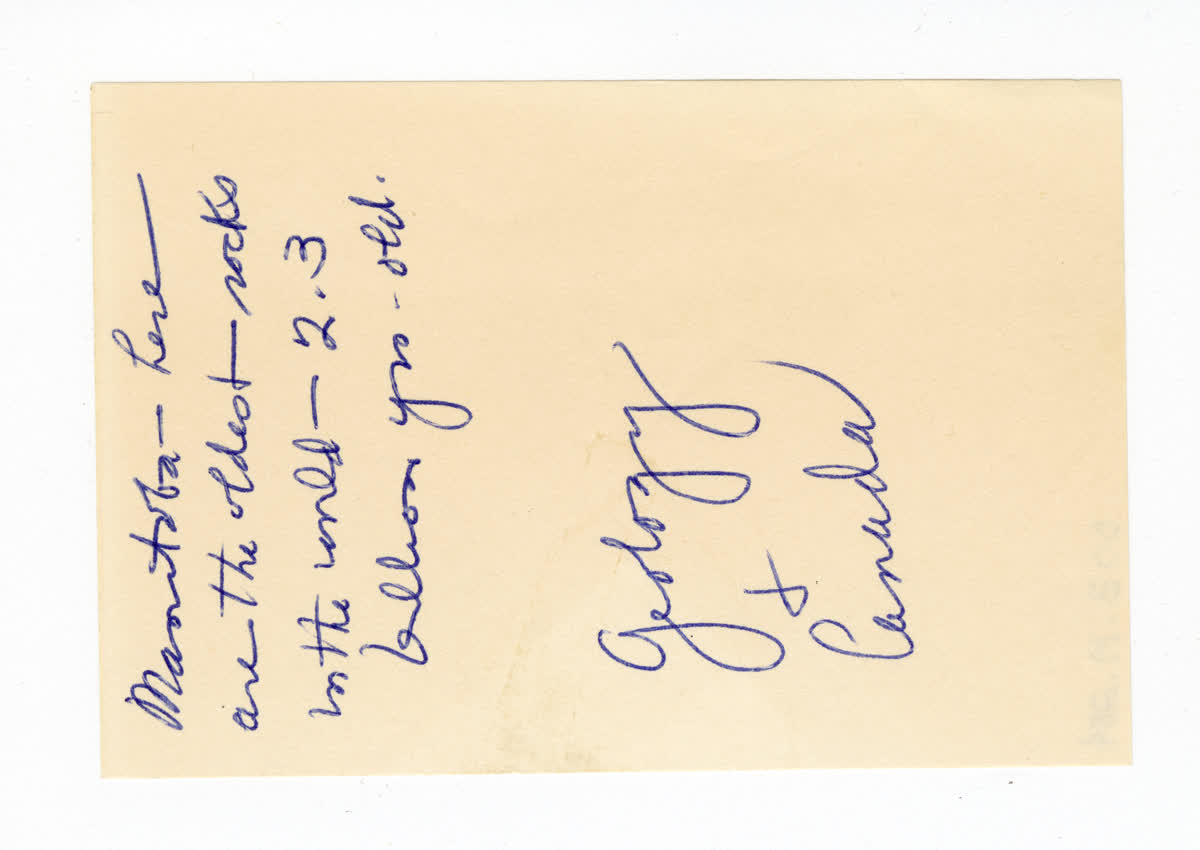 Manitoba — here
are the oldest rocks
in the world — 2.3
billion yrs - old.
Geology
+
Canada